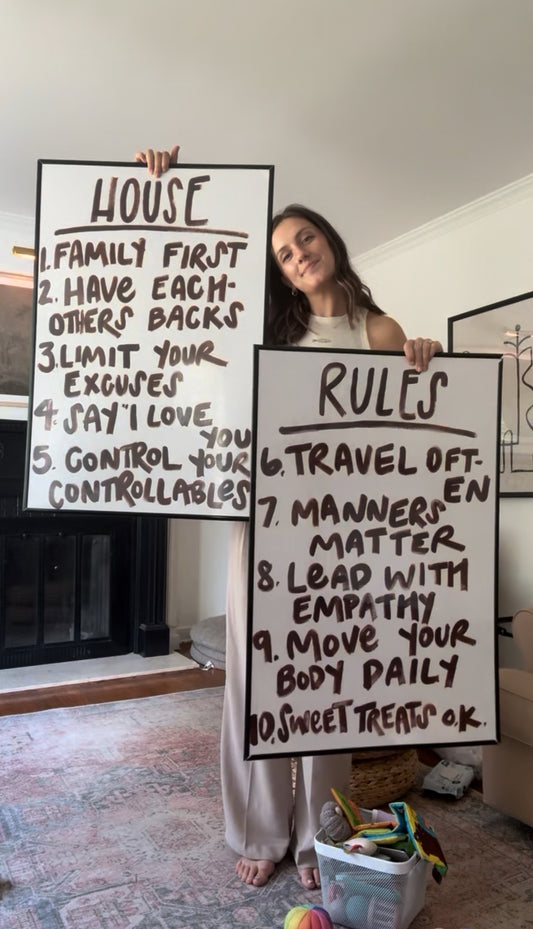 HOUSE
1. FAMILY FIRST
2. HAVE EACH-
OTHERS BACKS
3. LIMIT YOUR
EXCUSES
4. SAY "I LOVE
YOU
5. CONTROL YOUR
CONTROLLABLES
RULES
6. TRAVEL OFT-
EN
7. MANNERS
MATTER
8. LEAD WITH
EMPATHY
9. MOVE YOUR
BODY DAILY
10. SWEET TREATS O.K.